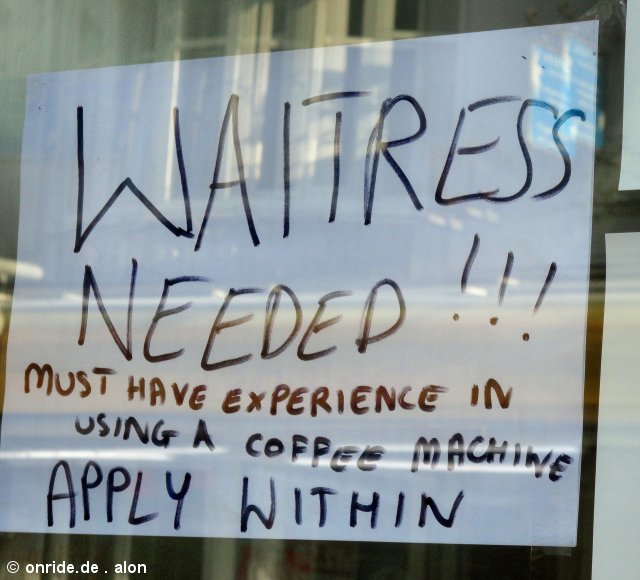 WAITRESS
NEEDED!!!
MUST HAVE EXPERIENCE IN
USING A COFFEE MACHINE
APPLY WITHIN
© onride.de . alon